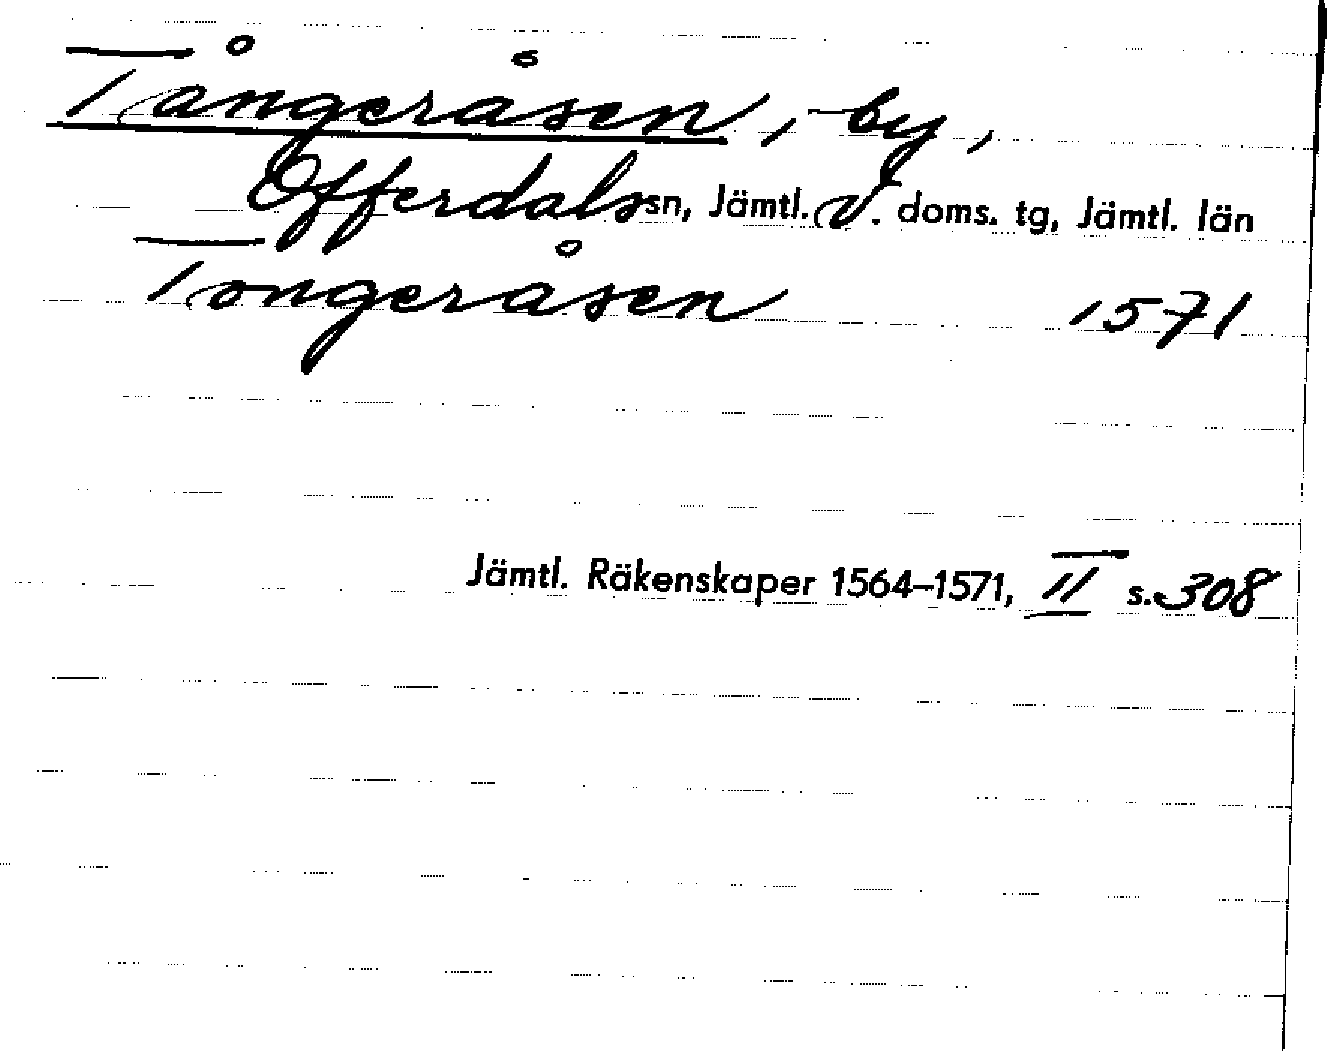 Tångeråsen, by,
Offerdals sn, Jämtl. V. doms. tg, Jämtl. län
Tongeråsen 1571
Jämtl. Räkenskaper 1564–1571, II s. 308